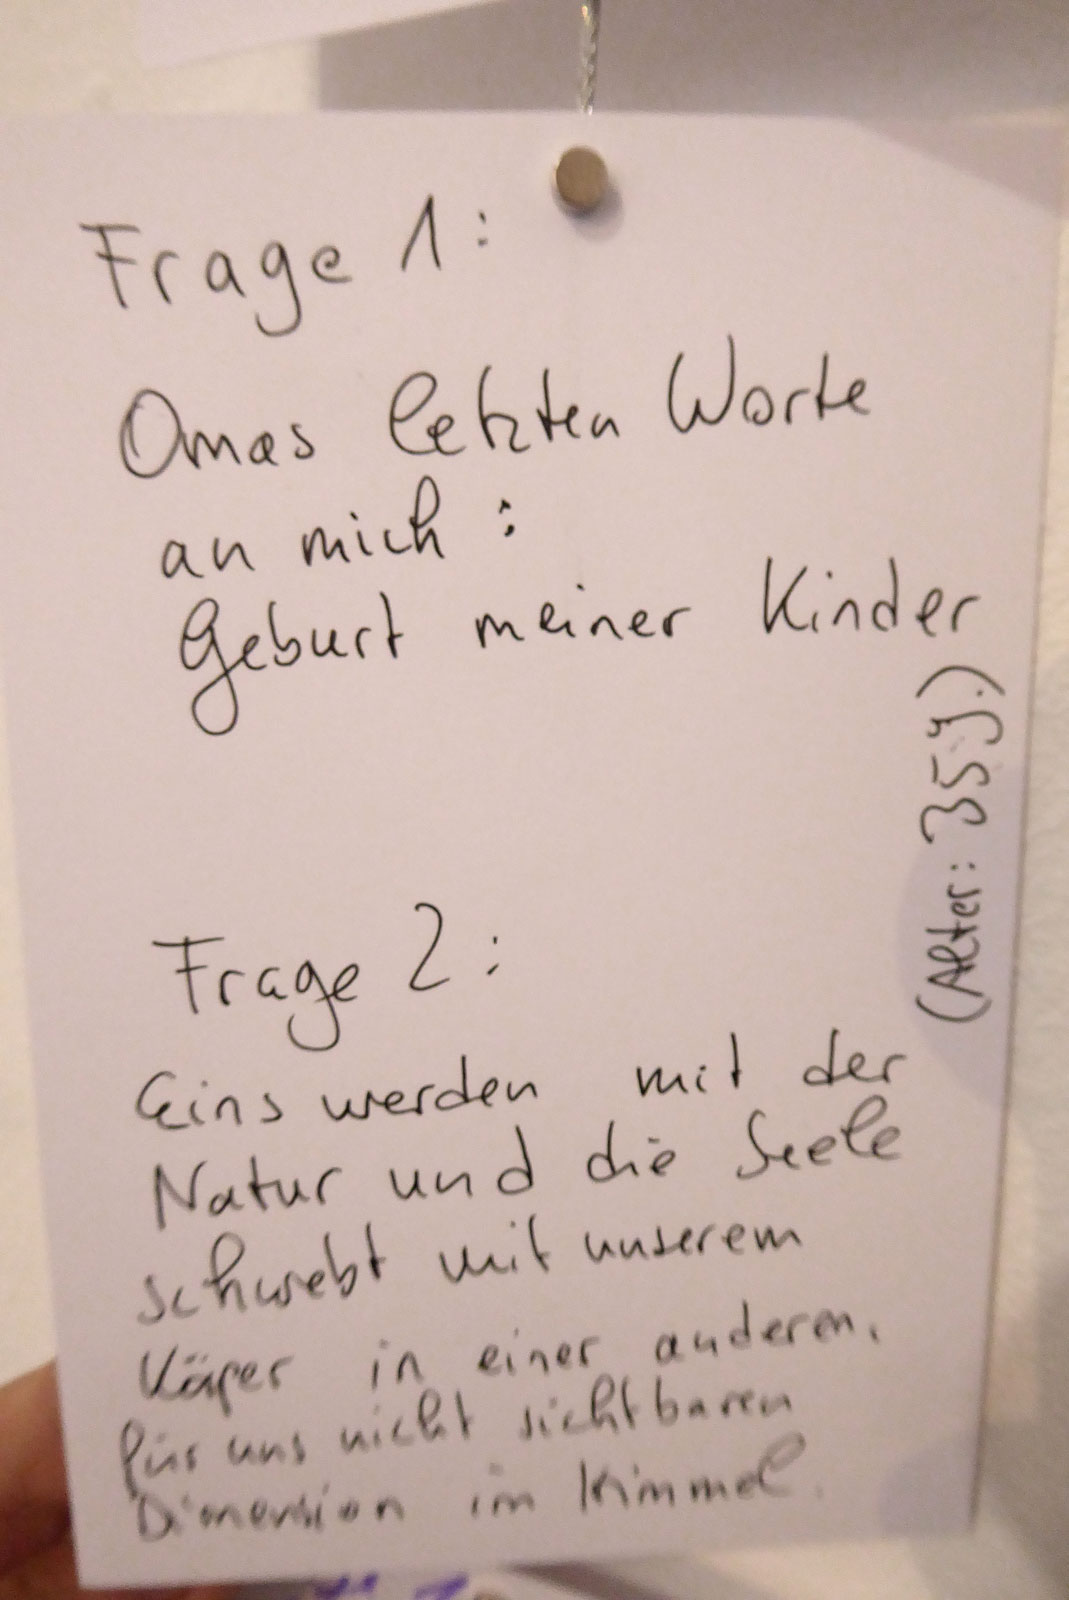 Frage 1:
Omas letzten Worte
an mich:
Geburt meiner Kinder
(Alter: 35 J.)
Frage 2:
Eins werden mit der
Natur und die Seele
schwebt mit unserem
Käper in einer anderen,
für uns nicht sichtbaren
Dimension im Himmel.